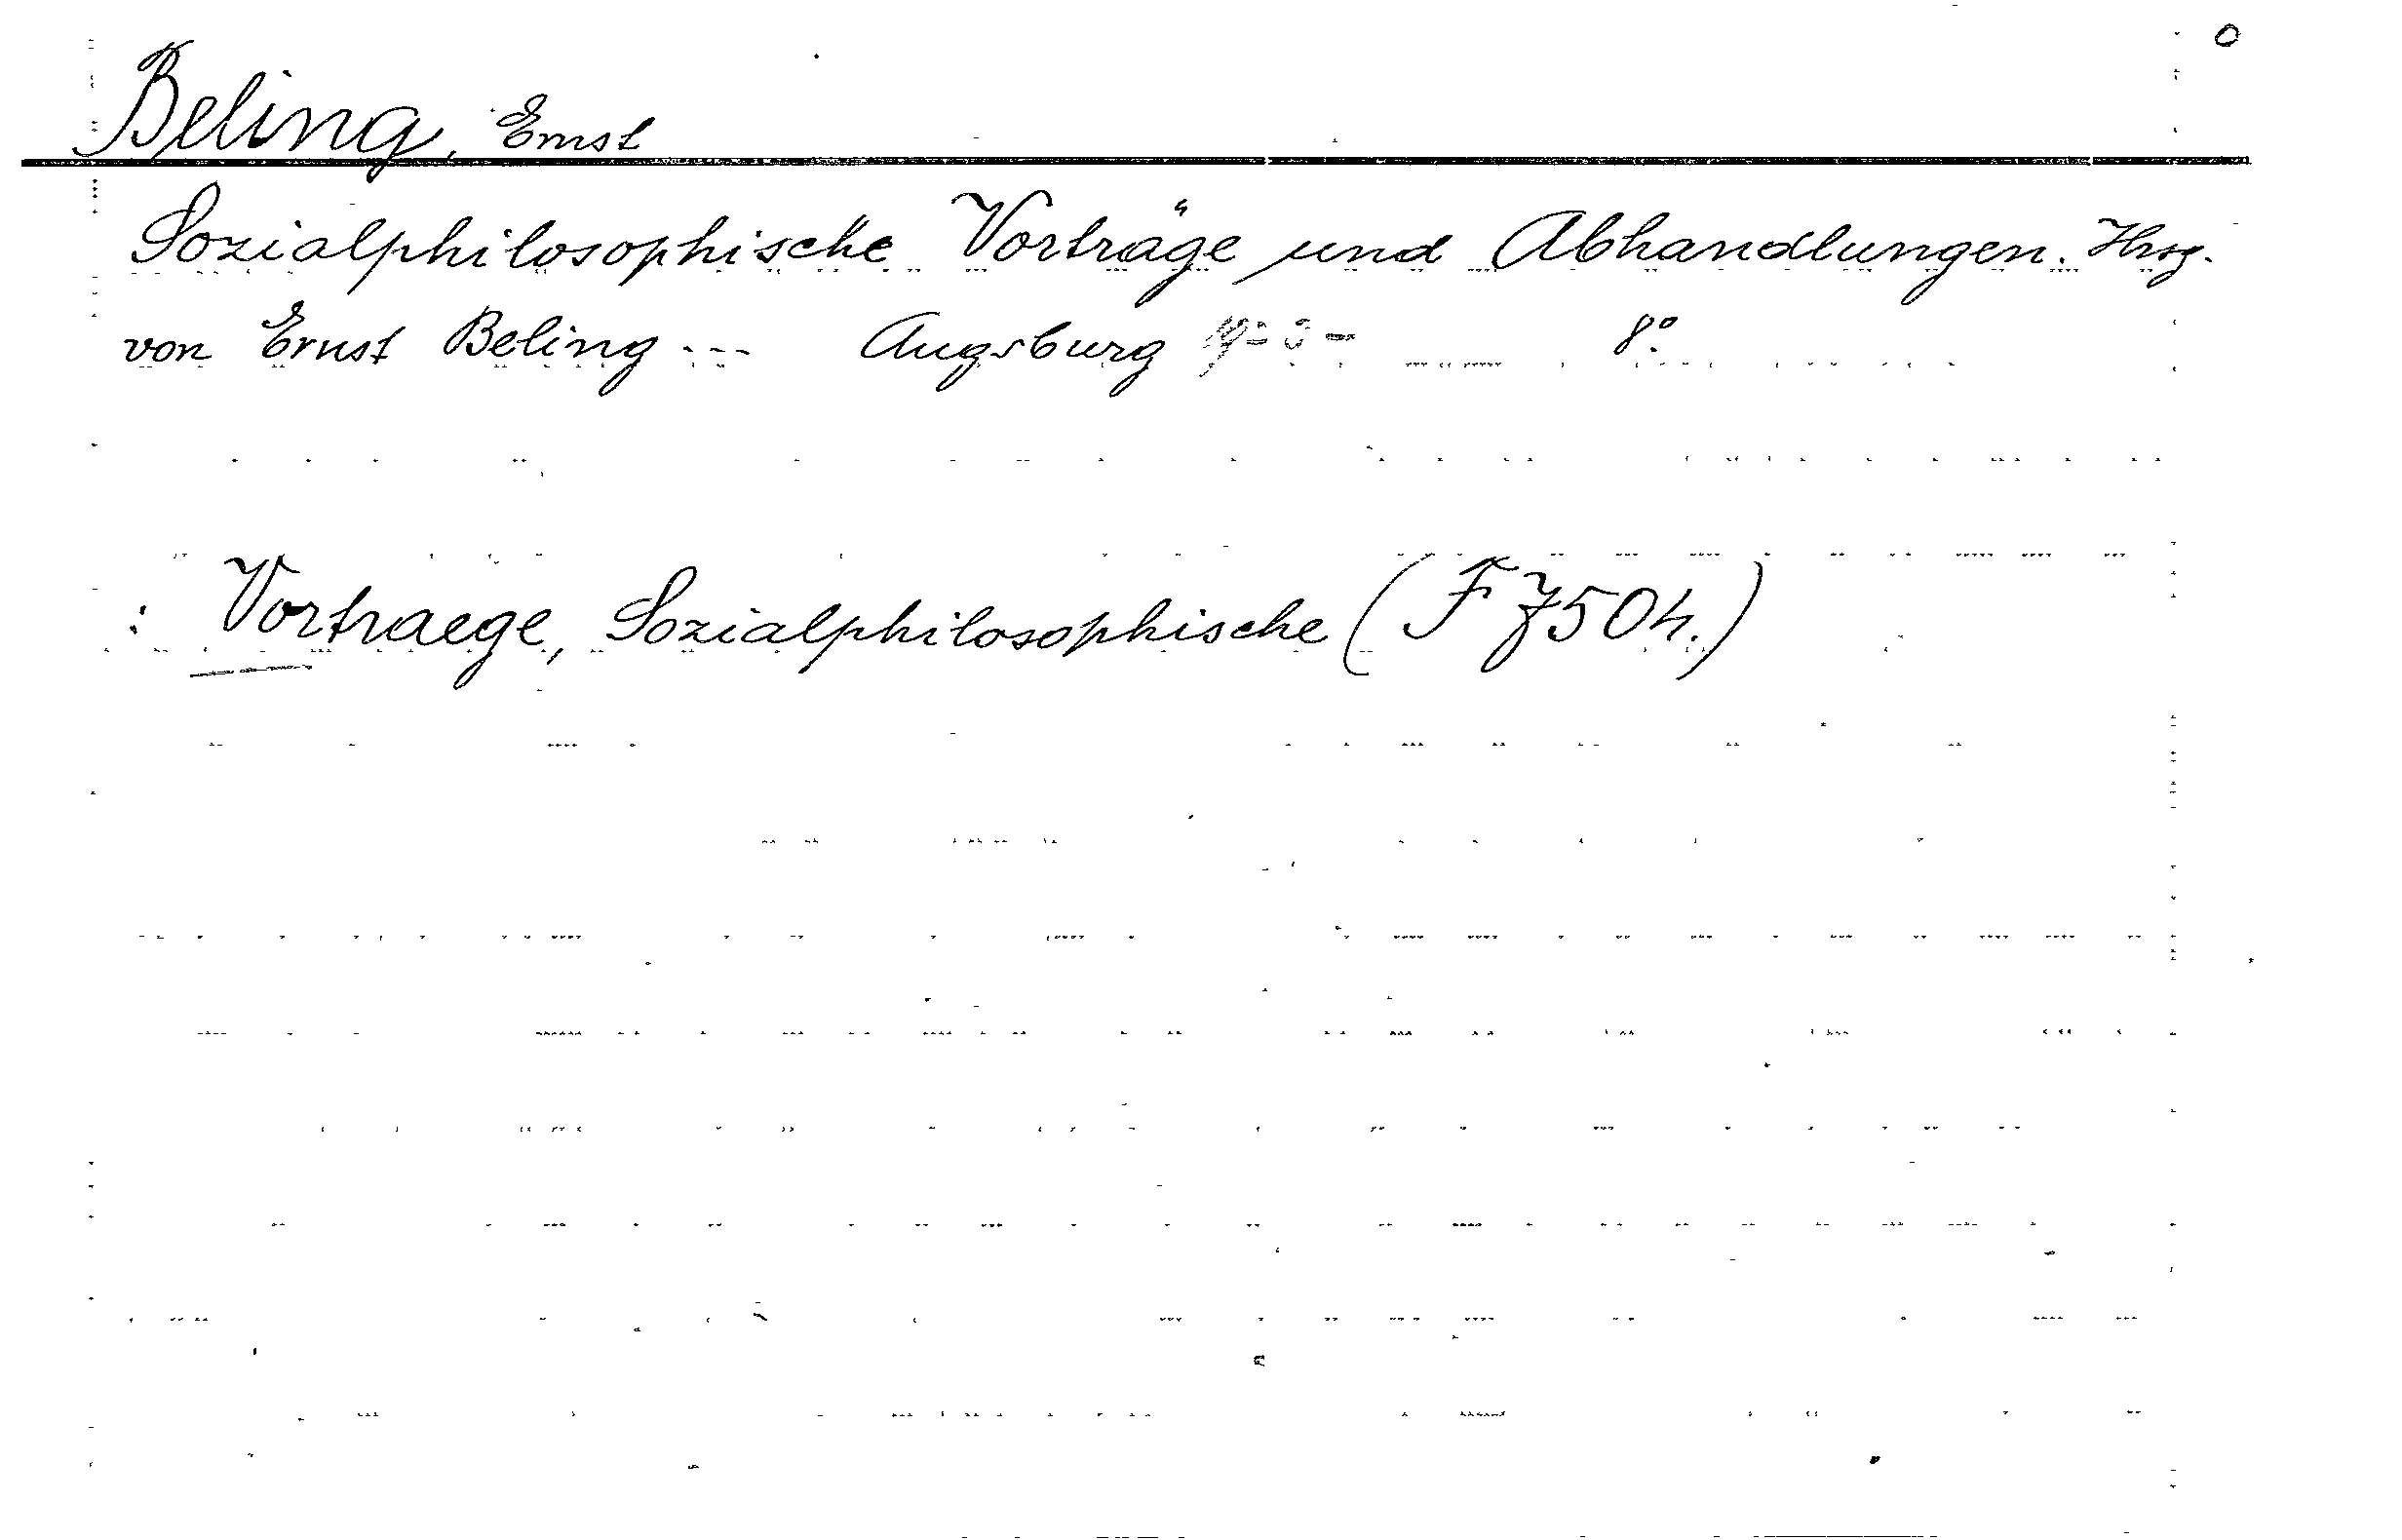 0
Beling, Ernst
Sozialphilosophische Vorträge und Abhandlungen. Hrsg.
von Ernst Beling --- Augsburg 8°.
: Vortraege, Sozialphilosophische (F 7504.)